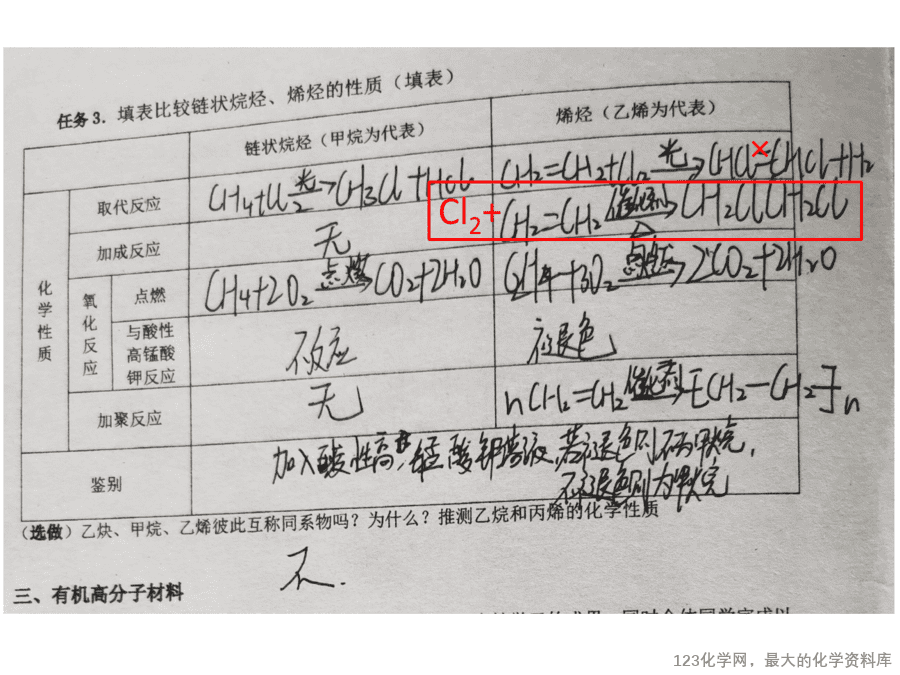 任务3．填表比较链状烷烃、烯烃的性质（填表）
链状烷烃（甲烷为代表）
烯烃（乙烯为代表）
化学性质
取代反应
CH₄+Cl₂ 光→ CH₃Cl+HCl
CH₂=CH₂+Cl₂ 光→ CHCl=CHCl+H₂
×
加成反应
无
Cl₂+
CH₂=CH₂ 催化剂→△ CH₂ClCH₂Cl
氧化反应
点燃
CH₄+2O₂ 点燃→ CO₂+2H₂O
C₂H₄+3O₂ 点燃→ 2CO₂+2H₂O
与酸性
高锰酸
钾反应
不反应
褪色
加聚反应
无
nCH₂=CH₂ 催化剂→ [CH₂-CH₂]n
鉴别
加入酸性高锰酸钾溶液，若褪色则不为甲烷，
不褪色则为甲烷
（选做）乙炔、甲烷、乙烯彼此互称同系物吗？为什么？推测乙烷和丙烯的化学性质
不.
三、有机高分子材料
123化学网，最大的化学资料库